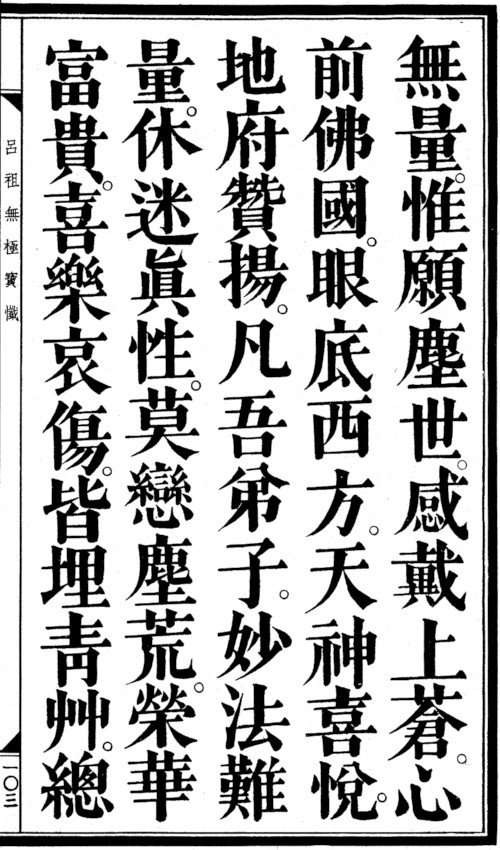 無量。惟願塵世。感戴上蒼。心
前佛國。眼底西方。天神喜悅。
地府贊揚。凡吾弟子。妙法難
量。休迷眞性。莫戀塵荒。榮華
富貴。喜樂哀傷。皆埋靑艸。總
呂祖無極寶懺
一〇三